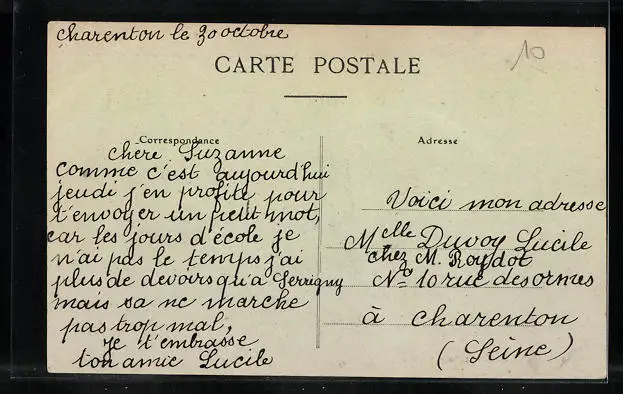 Charenton le 30 octobre
10
CARTE POSTALE
Correspondance
chère Suzanne
comme c'est aujourd'hui
jeudi j'en profite pour
t'envoyer un petit mot,
car les jours d'école je
n'ai pas le temps j'ai
plus de devoirs qu'a Serrigny
mais sa ne marche
pas trop mal,
je t'embrasse
ton amie Lucile
Adresse
Voici mon adresse
Melle Duvoy Lucile
chez M. Roydot
No 10 rue des ormes
à Charenton
(Seine)